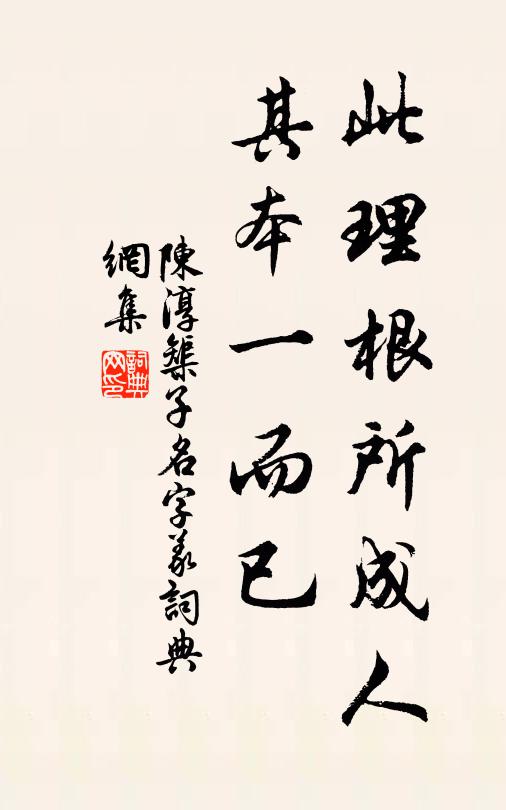 此理根所成人
其本一而已
陳淳榘子名字義詞典
網集
詞典網印